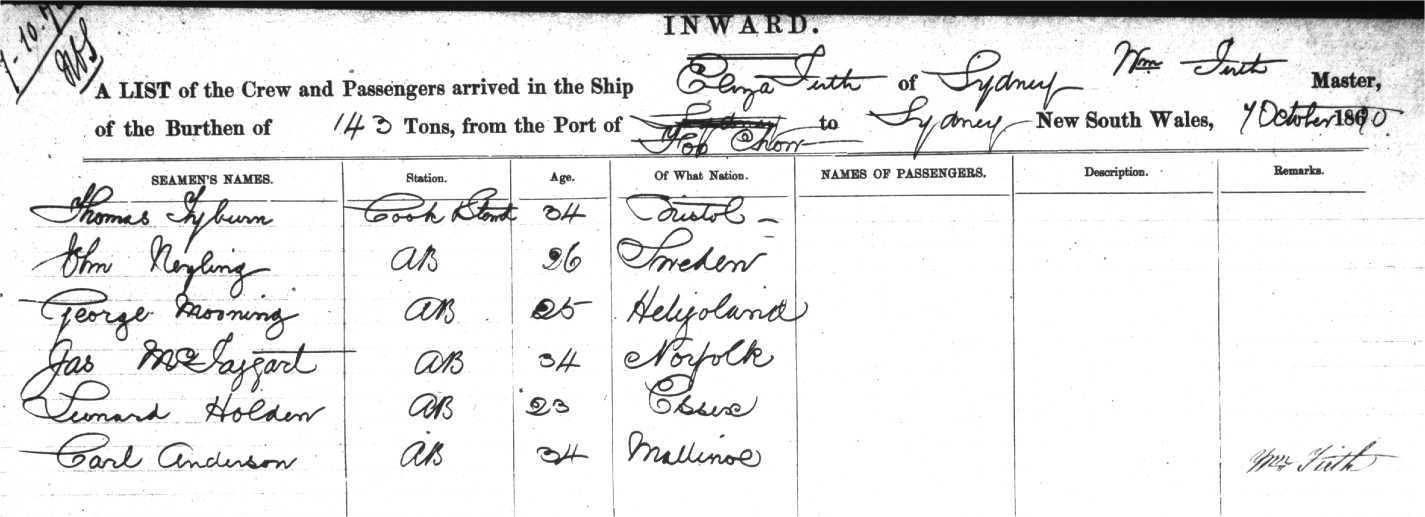 INWARD.
A LIST of the Crew and Passengers arrived in the Ship Eliza Firth of Sydney Wm Firth Master,
of the Burthen of 143 Tons, from the Port of Foo Chow to Sydney New South Wales, 7 October 1870.
SEAMEN'S NAMES. Station. Age. Of What Nation. NAMES OF PASSENGERS. Description. Remarks.
Thomas Tyburn Cook & Stewd 34 Bristol
John Neyling AB 26 Sweden
George Mooning AB 25 Heligoland
Jas McTaggart AB 34 Norfolk
Leonard Holden AB 23 Essex
Carl Anderson AB 34 Wm Firth